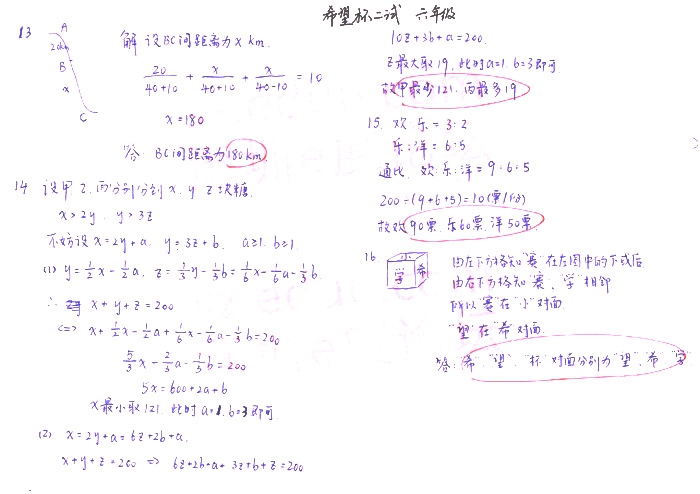 希望杯二试 六年级
13
A
20km
B
x
C
解 设BC间距离为x km.
20/(40+10) + x/(40+10) + x/(40-10) = 10
x=180
答: BC间距离为180km.
14 设甲乙丙分别分到x, y z块糖.
x>2y, y>3z
不妨设 x=2y+a, y=3z+b, a≥1. b≥1.
(1) y=1/2x-1/2a, z=1/3y-1/3b=1/6x-1/6a-1/3b
∴ x+y+z=200
<=> x+1/2x-1/2a+1/6x-1/6a-1/3b=200
5/3x-2/3a-1/3b=200
5x=600+2a+b
x最小取121, 此时a=1, b=3即可
(2) x=2y+a=6z+2b+a.
x+y+z=200 => 6z+2b+a+3z+b+z=200
10z+3b+a=200.
z最大取19, 此时a=1. b=3即可
故甲最少121, 丙最多19
15. 欢:乐=3:2
乐:洋=6:5
通比, 欢:乐:洋=9:6:5
200÷(9+6+5)=10(票/份)
故欢90票, 乐60票, 洋50票.
16
学 希
由左下方格知"赛"在左图中的下或后
由右下方格知"赛"、"学"相邻
所以"赛"在"小"对面
"望"在希对面.
答: "希"、"望"、"杯"对面分别为"望"、希"、"学